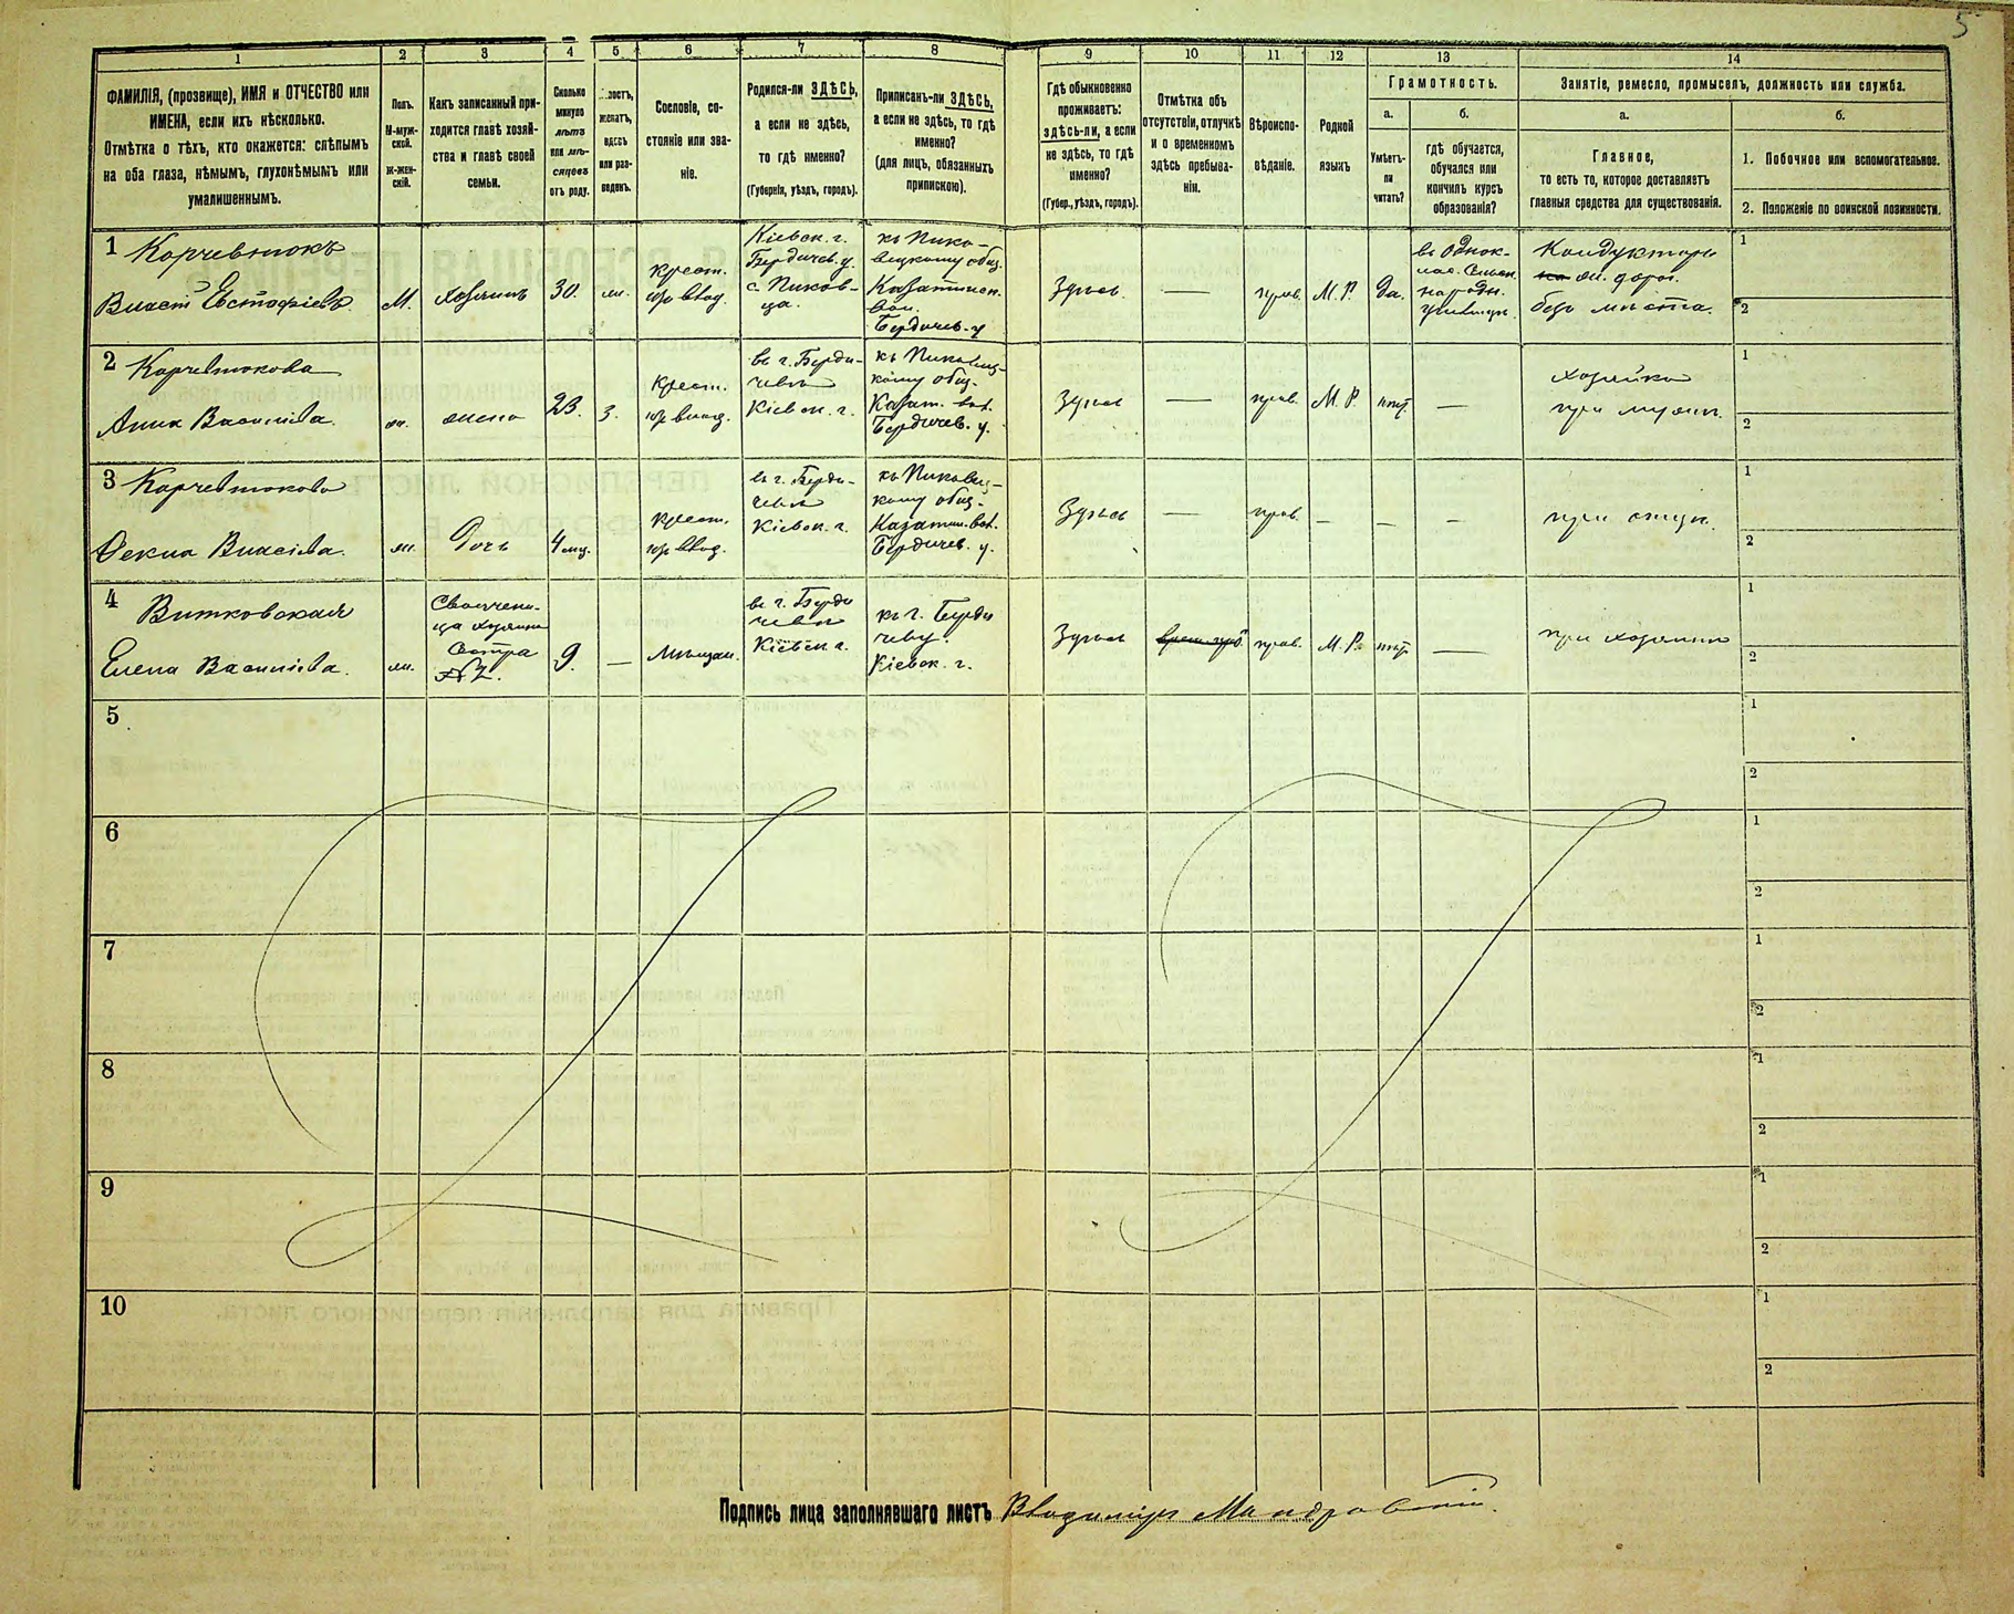 5
1
2
3
4
5
6
7
8
9
10
11
12
13
14
ФАМИЛІЯ, (прозвище), ИМЯ и ОТЧЕСТВО или
ИМЕНА, если ихъ нѣсколько.
Отмѣтка о тѣхъ, кто окажется: слѣпымъ
на оба глаза, нѣмымъ, глухонѣмымъ или
умалишеннымъ.
Полъ.
М-муж-
ской.
Ж-жен-
скій.
Какъ записанный при-
ходится главѣ хозяй-
ства и главѣ своей
семьи.
Сколько
минуло
лѣтъ
или мѣ-
сяцевъ
отъ роду.
лостъ,
женатъ,
вдовъ
или раз-
веденъ.
Сословіе, со-
стояніе или зва-
ніе.
Родился-ли ЗДѢСЬ,
а если не здѣсь,
то гдѣ именно?
(Губернія, уѣздъ, городъ).
Приписанъ-ли ЗДѢСЬ,
а если не здѣсь, то гдѣ
именно?
(для лицъ, обязанныхъ
припискою).
Гдѣ обыкновенно
проживаетъ:
здѣсь-ли, а если
не здѣсь, то гдѣ
именно?
(Губер., уѣздъ, городъ).
Отмѣтка объ
отсутствіи, отлучкѣ
и о временномъ
здѣсь пребыва-
ніи.
Вѣроиспо-
вѣданіе.
Родной
языкъ
Грамотность.
а.
Умѣетъ-
ли
читать?
б.
гдѣ обучается,
обучался или
кончилъ курсъ
образованія?
Занятіе, ремесло, промыселъ, должность или служба.
а.
Главное,
то есть то, которое доставляетъ
главныя средства для существованія.
б.
1. Побочное или вспомогательное.
2. Положеніе по воинской повинности.
1 Корчевнюкъ
Власт Евстафіевъ
М.
хозяинъ
30.
жн.
крест.
изъ влад.
Кіевск. г.
Бердичев. у.
с. Пиков-
ца.
къ Пико-
вецкому общ.
Казатинск.
вол.
Бердичев. у
Здѣсь
прав.
М. Р.
да.
въ однок-
лас. Сельск.
народн.
училищѣ.
Кондукторъ
на жл. дорог.
безъ мѣста.
1
2
2 Корчевнюкова
Анна Василіева.
ж.
жена
23.
з.
крест.
изъ влад.
въ г. Берди-
чевѣ
Кіевск. г.
къ Пиковец-
кому общ.
Казат. вол.
Бердичев. у.
Здѣсь
—
прав.
М. Р.
нѣт.
—
хозяйка
при мужѣ.
1
2
3 Корчевнюкова
Ѳекла Власіева.
ж.
Дочь
4 мц.
крест.
изъ влад.
въ г. Берди-
чевѣ
Кіевск. г.
къ Пиковец-
кому общ.
Казатин. вол.
Бердичев. у.
Здѣсь
—
прав.
–
–
–
при отцѣ.
1
2
4 Витковская
Елена Василіева.
ж.
Своячени-
ца хозяина
Сестра
№ 2.
9.
—
мѣщан.
въ г. Берди
чевѣ
Кіевск г.
къ г. Берди
чеву.
Кіевск. г.
Здѣсь
прав.
М. Р.
нѣт.
—
при хозяинѣ
1
2
5
1
2
6
1
2
7
1
2
8
1
2
9
1
2
10
1
2
Подпись лица заполнявшаго листъ Владиміръ